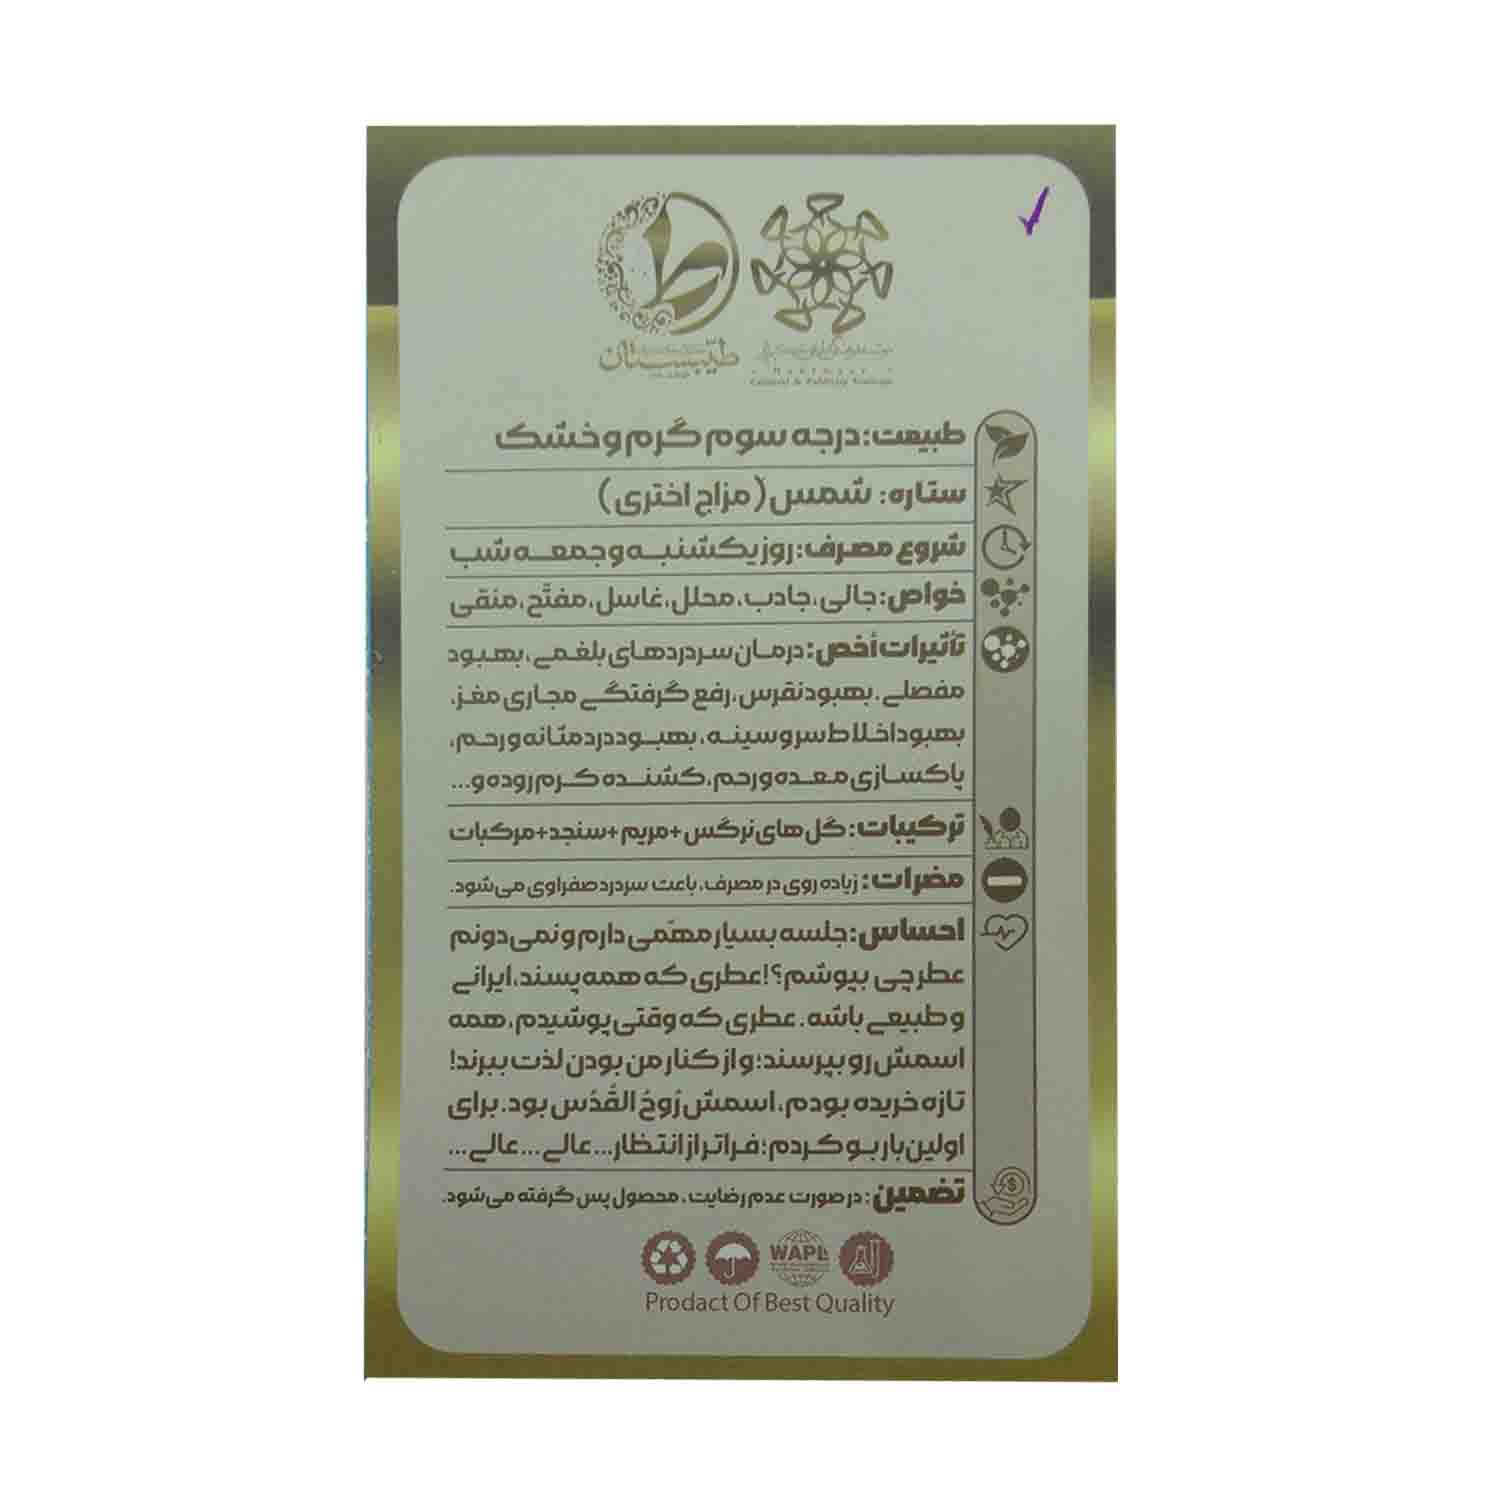 طیبستان
Cultural & Publicity Institute
طبیعت: درجه سوم گرم و خشک
ستاره: شمس (مزاج اختری)
شروع مصرف: روز یکشنبه و جمعه شب
خواص: جالی، جاذب، محلل، غاسل، مفتّح، منقی
تأثیرات أخص: درمان سردردهای بلغمی، بهبود
مفصلی. بهبود نقرس، رفع گرفتگی مجاری مغز،
بهبود اخلاط سر و سینه، بهبود درد مثانه و رحم،
پاکسازی معده و رحم، کشنده کرم روده و...
ترکیبات: گل های نرگس + مریم + سنجد + مرکبات
مضرات: زیاده روی در مصرف، باعث سردرد صفراوی می شود.
احساس: جلسه بسیار مهمّی دارم و نمی دونم
عطر چی بپوشم؟! عطری که همه پسند، ایرانی
و طبیعی باشه. عطری که وقتی پوشیدم، همه
اسمش رو بپرسند؛ و از کنار من بودن لذت ببرند!
تازه خریده بودم، اسمش رُوحُ القُدُس بود. برای
اولین بار بو کردم؛ فراتر از انتظار... عالی... عالی...
تضمین: در صورت عدم رضایت، محصول پس گرفته می شود.
WAPL
Prodact Of Best Quality